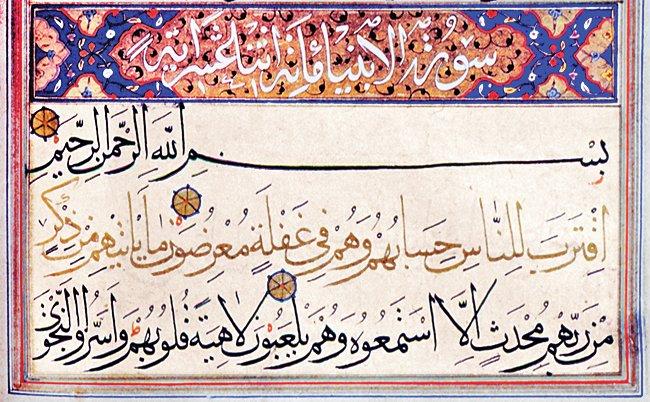 سورة الانبياء مائة اثنا عشر اية
بسم الله الرحمن الرحيم
اقْتَرَبَ لِلنَّاسِ حِسَابُهُمْ وَهُمْ فِي غَفْلَةٍ مُعْرِضُونَ مَا يَأْتِيهِمْ مِنْ ذِكْرٍ
مِنْ رَبِّهِمْ مُحْدَثٍ إِلَّا اسْتَمَعُوهُ وَهُمْ يَلْعَبُونَ لَاهِيَةً قُلُوبُهُمْ وَأَسَرُّوا النَّجْوَى